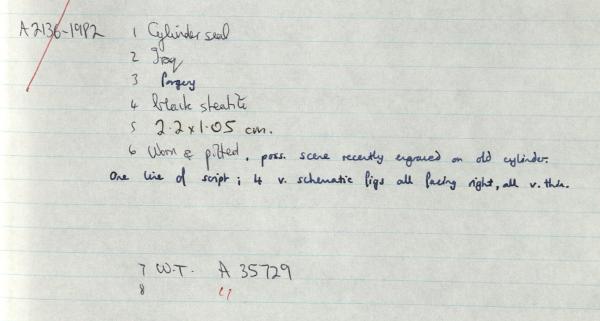 A2136-1982 1 Cylinder seal
2 Iraq
3 Forgery
4 black steatite
5 2.2 x 1.05 cm.
6 Worn & pitted, poss. scene recently engraved on old cylinder.
One line of script; 4 v. schematic figs all facing right, all v. thin.
7 W.T. A 35729
8